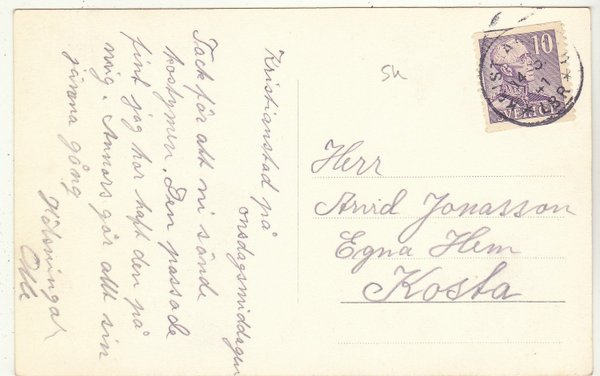 Kristianstad på
onsdagsmiddagen
Tack för att ni sände
kostymen. Den passade
fint jag har haft den på
mig. Annars går allt sin
jämna gång
Hälsningar
Olle
Sk
10
SVERIGE
Herr
Arvid Jonasson
Egna Hem
Kosta